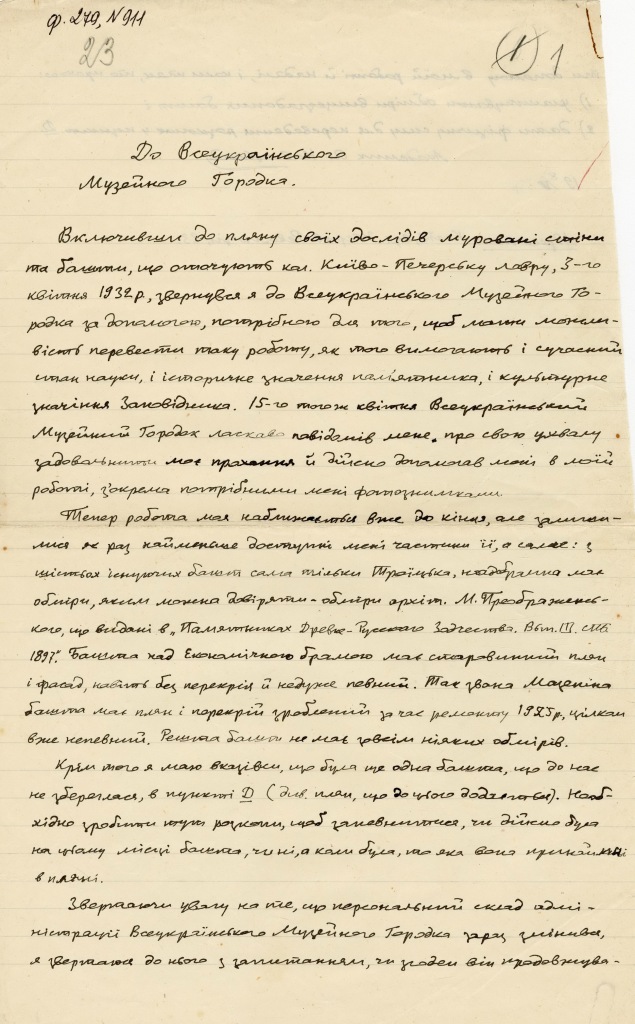 ф. 279, №911
23
1 1
До Всеукраїнського
Музейного Городка.
Включивши до пляну своїх дослідів муровані стіни
та башти, що оточують кол. Київо-Печерську лавру, 3-го
квітня 1932 р, звернувся я до Всеукраїнського Музейного Го-
родка за допомогою, потрібною для того, щоб мати можли-
вість перевести таку роботу, як того вимогають і сучасний
стан науки, і історичне значення пам'ятника, і культурне
значіння Заповідника. 15-го того ж квітня Всеукраїнський
Музейний Городок ласкаво повідомів мене про свою ухвалу
задовольнити моє прохання й дійсно допомогав мені в моїй
роботі, з'окрема потрібними мені фотознимками
Тепер робота моя наближається вже до кінця, але залиши-
лися як раз найменьше доступні мені частини її, а саме: з
шістьох існуючих башт сама тільки Троїцька, надбрамна має
обміри, яким можна довіряти - обміри архіт. М. Преображенсь-
кого, що видані в „Памятниках Древне-Русскаго Зодчества. Вып. III. СПБ
1897". Башта над Економічною брамою має старовинний плян
і фасад, навіть без перекрія й не дуже певний. Так звана Мазепина
башта має плян і перекрій зроблений за час ремонту 1925 р, цілком
вже непевний. Решта башт не має зовсім ніяких обмірів.
Крім того я маю вказівки, що була ще одна башта, що до нас
не збереглася, в пункті D (див. плян, що до цього додається). Необ-
хідно зробити тут розкопи, щоб запевнитися, чи дійсно була
на цьому місці башта, чи ні, а коли була, то яка вона принаймні
в пляні.
Звертаючи увагу на те, що персональний склад адмі-
ністрації Всеукраїнського Музейного Городка зараз змінився,
я звертаюся до нього з запитанням, чи згоден він продовжува-